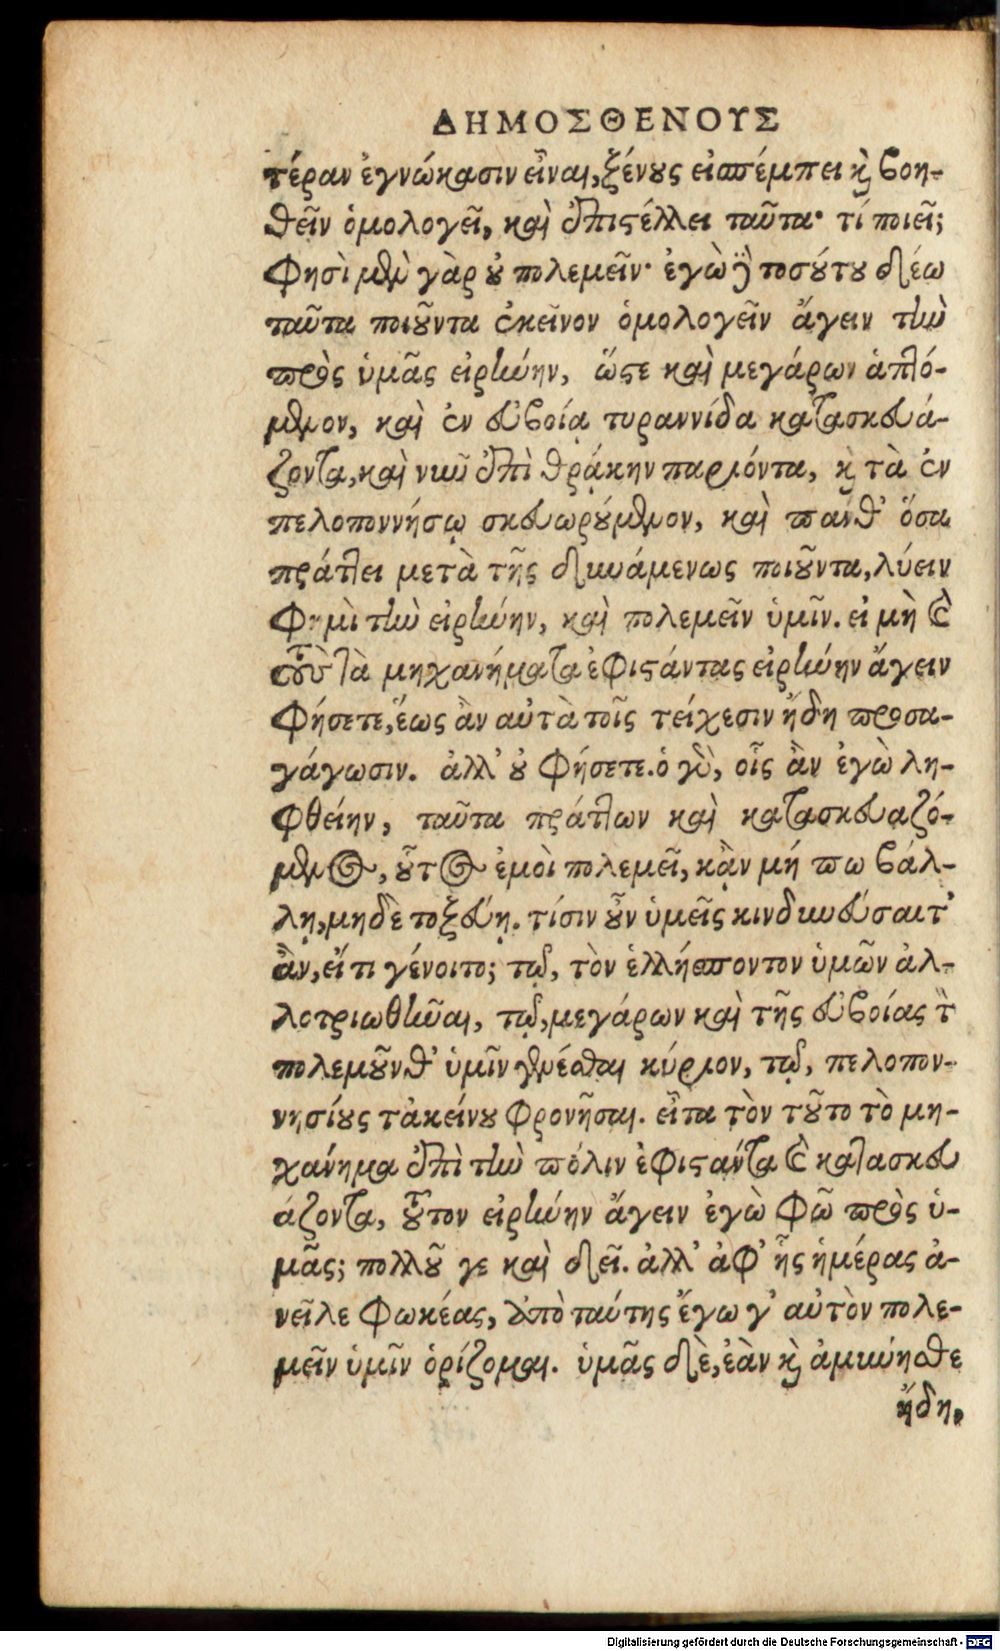 ΔΗΜΟΣΘΕΝΟΥΣ
τέραν ἐγνώκασιν εἶναι, ξένους εἰσπέμπει καὶ βοη-
θεῖν ὁμολογεῖ, καὶ ἐπιστέλλει ταῦτα· τί ποιεῖ;
φησὶ μὲν γὰρ οὐ πολεμεῖν· ἐγὼ δὲ τοσούτου δέω
ταῦτα ποιοῦντα ἐκεῖνον ὁμολογεῖν ἄγειν τὴν
πρὸς ὑμᾶς εἰρήνην, ὥστε καὶ μεγάρων ἁπτό-
μενον, καὶ ἐν εὐβοίᾳ τυραννίδα κατασκευά-
ζοντα, καὶ νῦν ἐπὶ θρᾴκην παριόντα, καὶ τὰ ἐν
πελοποννήσῳ σκευωρούμενον, καὶ πάνθ' ὅσα
πράττει μετὰ τῆς δυνάμεως ποιοῦντα, λύειν
φημὶ τὴν εἰρήνην, καὶ πολεμεῖν ὑμῖν. εἰ μὴ καὶ
τοὺς τὰ μηχανήματα ἐφιστάντας εἰρήνην ἄγειν
φήσετε, ἕως ἂν αὐτὰ τοῖς τείχεσιν ἤδη προσα-
γάγωσιν. ἀλλ' οὐ φήσετε. ὁ γὰρ, οἷς ἂν ἐγὼ λη-
φθείην, ταῦτα πράττων καὶ κατασκευαζό-
μενος, οὗτος ἐμοὶ πολεμεῖ, κᾂν μή πω βάλ-
λῃ, μηδὲ τοξεύῃ. τίσιν οὖν ὑμεῖς κινδυνεύσαιτ'
ἂν, εἴ τι γένοιτο; τῷ, τὸν ἑλλήσποντον ὑμῶν ἀλ-
λοτριωθῆναι, τῷ, μεγάρων καὶ τῆς εὐβοίας τὸν
πολεμοῦνθ' ὑμῖν γενέσθαι κύριον, τῷ, πελοπον-
νησίους τἀκείνου φρονῆσαι. εἶτα τὸν τοῦτο τὸ μη-
χάνημα ἐπὶ τὴν πόλιν ἐφιστάντα καὶ κατασκευ
άζοντα, τοῦτον εἰρήνην ἄγειν ἐγὼ φῶ πρὸς ὑ-
μᾶς; πολλοῦ γε καὶ δεῖ. ἀλλ' ἀφ' ἧς ἡμέρας ἀ-
νεῖλε φωκέας, ἀπὸ ταύτης ἔγωγ' αὐτὸν πολε-
μεῖν ὑμῖν ὁρίζομαι. ὑμᾶς δὲ, ἐὰν καὶ ἀμύνησθε
ἤδη,
Digitalisierung gefördert durch die Deutsche Forschungsgemeinschaft - DFG